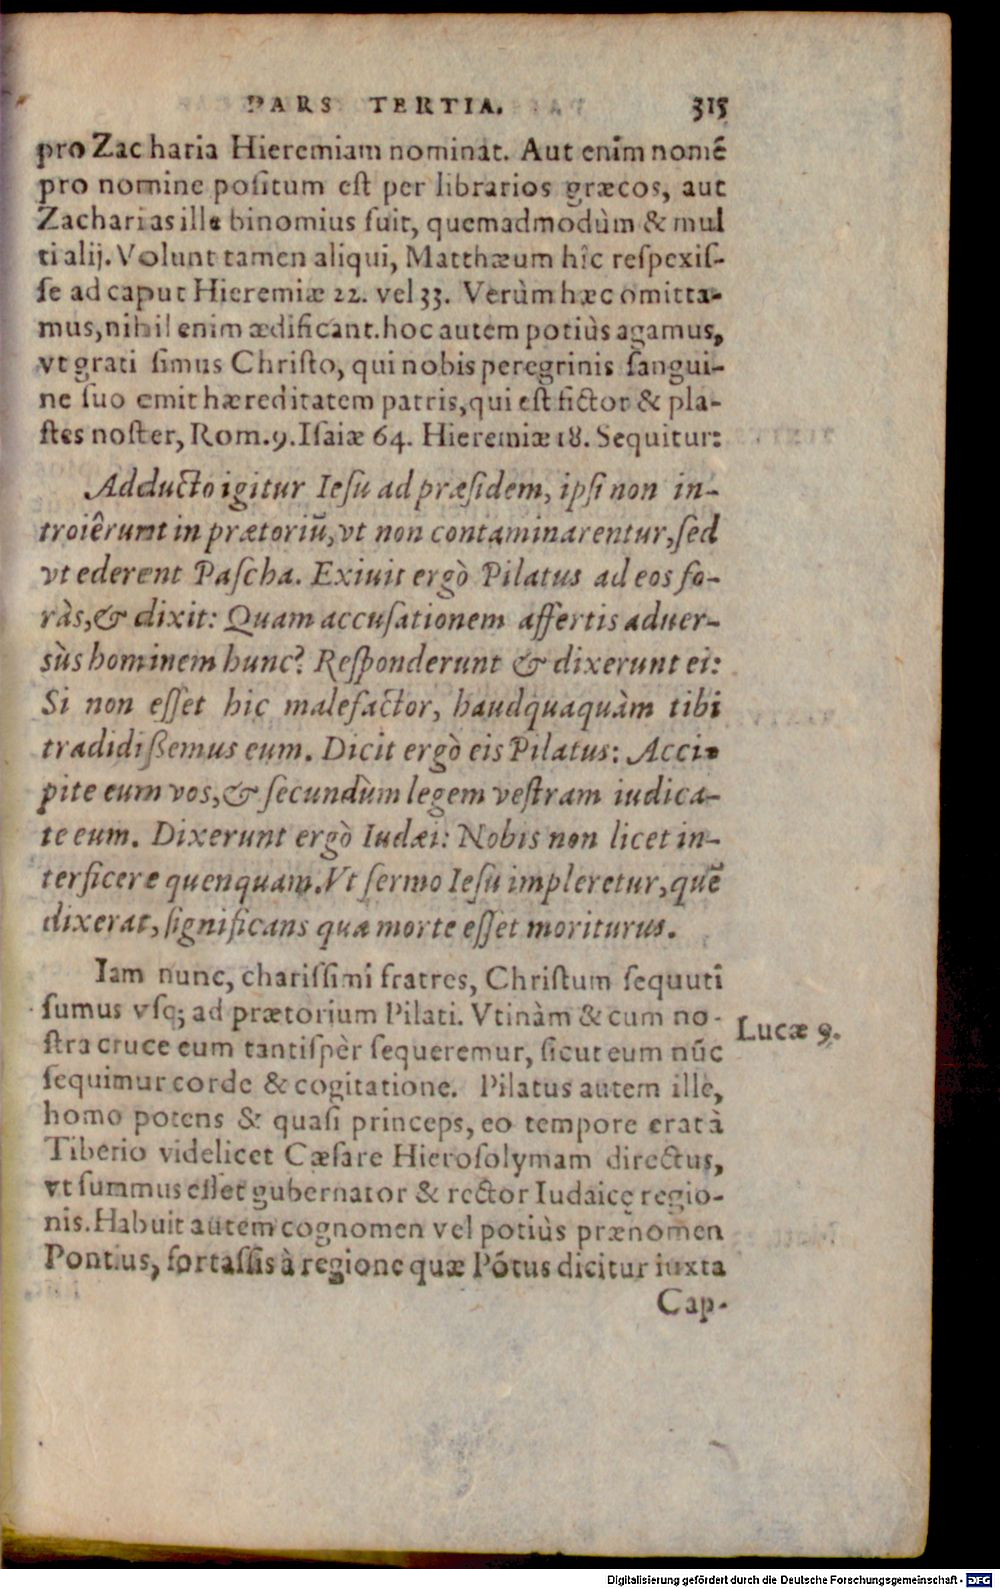 PARS TERTIA. 315
pro Zacharia Hieremiam nominat. Aut enim nomẽ
pro nomine positum est per librarios græcos, aut
Zacharias ille binomius fuit, quemadmodùm & mul
ti alij. Volunt tamen aliqui, Matthæum hîc respexis-
se ad caput Hieremiæ 22. vel 33. Verùm hæc omitta-
mus, nihil enim ædificant. hoc autem potiùs agamus,
vt grati simus Christo, qui nobis peregrinis sangui-
ne suo emit hæreditatem patris, qui est fictor & pla-
stes noster, Rom. 9. Isaiæ 64. Hieremiæ 18. Sequitur:
Adducto igitur Iesu ad præsidem, ipsi non in-
troiêrunt in prætoriũ, vt non contaminarentur, sed
vt ederent Pascha. Exiuit ergò Pilatus ad eos fo-
ràs, & dixit: Quam accusationem affertis aduer-
sùs hominem hunc? Responderunt & dixerunt ei:
Si non esset hic malefactor, haudquaquàm tibi
tradidißemus eum. Dicit ergò eis Pilatus: Acci-
pite eum vos, & secundùm legem vestram iudica-
te eum. Dixerunt ergò Iudæi: Nobis non licet in-
terficere quenquam. Vt sermo Iesu impleretur, quẽ
dixerat, significans qua morte esset moriturus.
Iam nunc, charissimi fratres, Christum sequuti
sumus vsq; ad prætorium Pilati. Vtinàm & cum no-
stra cruce eum tantispèr sequeremur, sicut eum nũc
Lucæ 9.
sequimur corde & cogitatione. Pilatus autem ille,
homo potens & quasi princeps, eo tempore erat à
Tiberio videlicet Cæsare Hierosolymam directus,
vt summus esset gubernator & rector Iudaicę regio-
nis. Habuit autem cognomen vel potiùs prænomen
Pontius, fortassis à regione quæ Põtus dicitur iuxta
Cap-
Digitalisierung gefördert durch die Deutsche Forschungsgemeinschaft - DFG